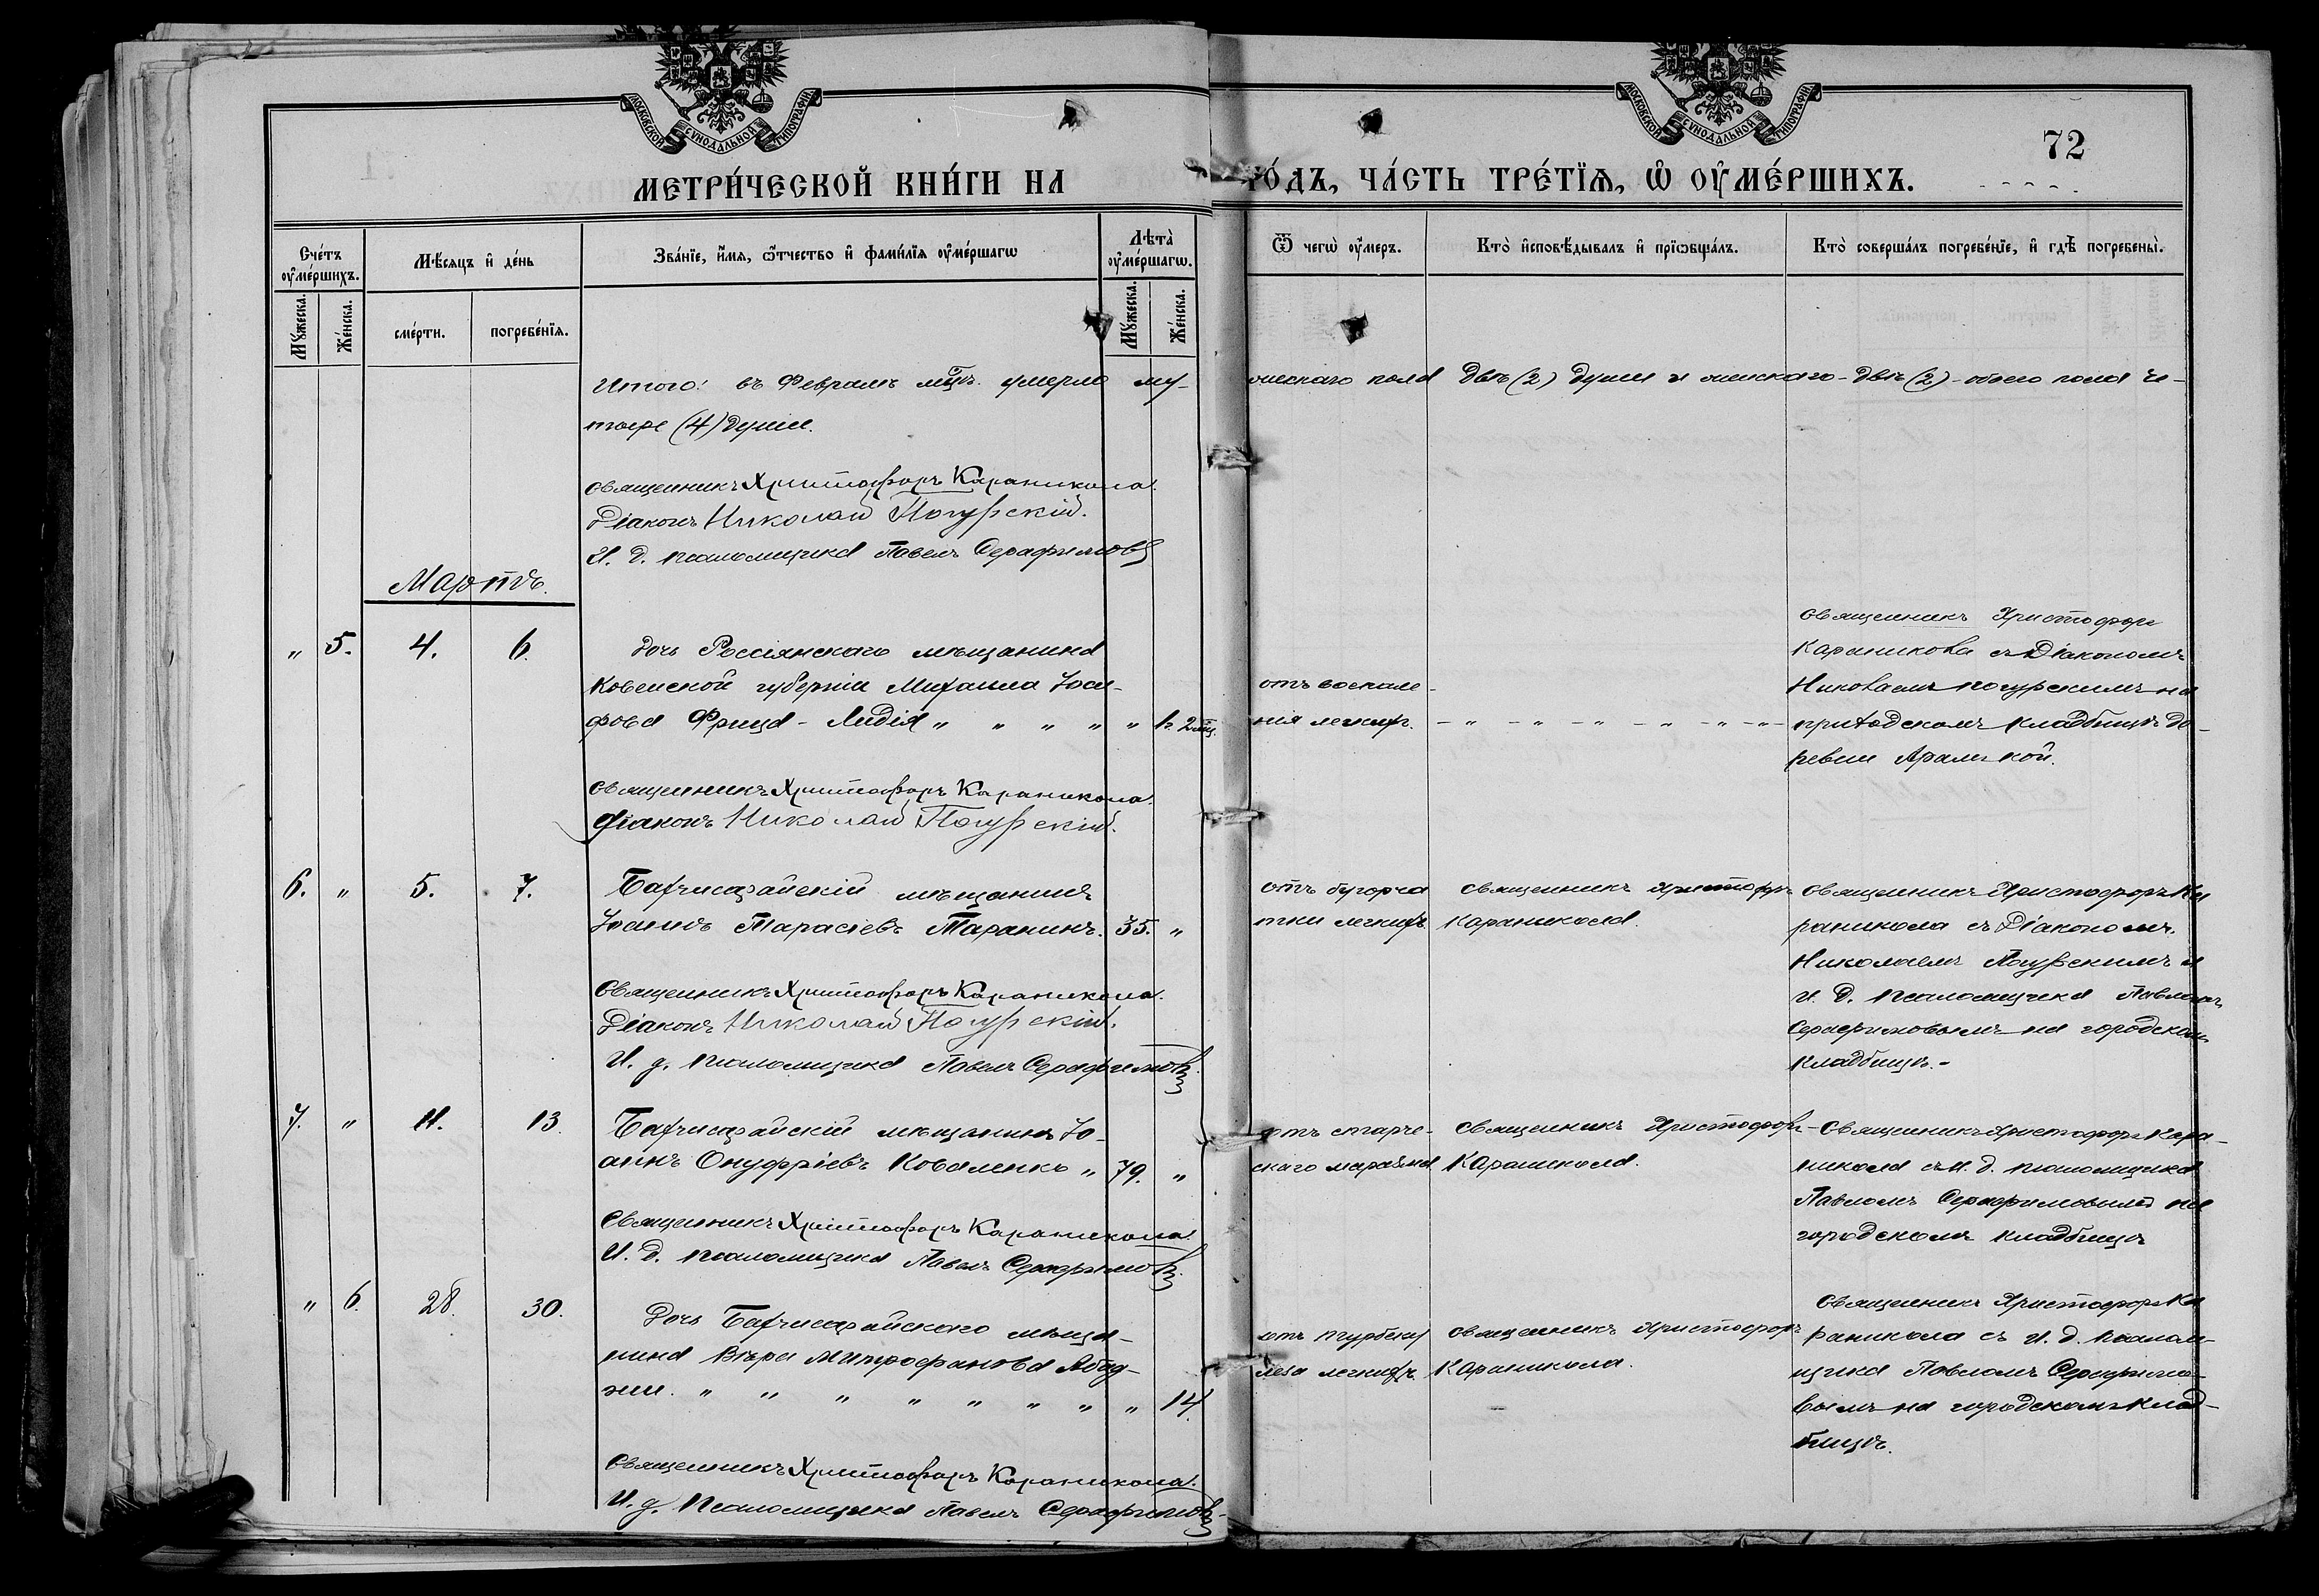 МОСКОВСКОЙ СѴНОДАЛЬНОЙ ТИПОГРАФІИ
МОСКОВСКОЙ СѴНОДАЛЬНОЙ ТИПОГРАФІИ
72
МЕТРИ́ЧЕСКОЙ КНИ́ГИ НА
ГО́ДЪ, ЧА́СТЬ ТРЕ́ТЇѦ, Ѡ҆ ОУ҆МЕ́РШИХЪ.
Сче́тъ оу҆ме́ршихъ.
Мѣ́сяцъ и҆ де́нь
Зва́нїе, и҆́мѧ, ѻ҆́тчество и҆ фами́лїѧ оу҆ме́ршагѡ
Лѣта̀ оу҆ме́ршагѡ.
Ѿ чегѡ̀ оу҆́меръ.
Кто̀ и҆сповѣ́дывалъ и҆ прїѡбща́лъ.
Кто̀ соверша́лъ погребе́нїе, и҆ гдѣ̀ погребены̀.
Мꙋ́жеска.
Же́нска.
сме́рти.
погребе́нїѧ.
Мꙋ́жеска.
Же́нска.
Итого: въ Февралѣ мцѣ. умерло му-
жескаго пола двѣ (2) души и женскаго - двѣ (2) - обоего пола че-
тыре (4) души.
Священникъ Христофоръ Караникола.
Діаконъ Николай Погурскій.
И. д. псаломщика Павелъ Серафимовъ
Мартъ.
„ 5. 4. 6.
Дочь Россіянскаго мѣщанина
Ковенской губерніи Михаила Іоси-
фова Фрица - Лидія „ „ „ „ „ 2 мц.
отъ воспале-
нія легкихъ. - „ - „ - „ - „ - „ - „ -
Священникъ Христофоръ
Караникола съ Діакономъ
Николаемъ Погурскимъ на
приходскомъ кладбищѣ де-
ревни
Священникъ Христофоръ Караникола.
Діаконъ Николай Погурскій.
6. „ 5. 7.
Бахчисарайскій мѣщанинъ
Іоаннъ Тарасіевъ Таранинъ. 35. „
отъ бугорча
тки легкихъ
Священникъ Христофоръ
Караникола.
Священникъ Христофоръ Ка
раникола съ Діакономъ
Николаемъ Погурскимъ и
И. д. псаломщика Павломъ
Серафимовымъ на городскомъ
кладбищѣ. -
Священникъ Христофоръ Караникола.
Діаконъ Николай Погурскій.
И. д. псаломщика Павелъ Серафимовъ.
7. „ 11. 13.
Бахчисарайскій мѣщанинъ Іо-
аннъ Онуфріевъ Коваленко „ 79. „
отъ старче-
скаго маразма
Священникъ Христофоръ -
Караникола.
Священникъ Христофоръ Кара-
никола съ И. д. псаломщика
Павломъ Серафимовымъ на
городскомъ кладбищѣ
Священникъ Христофоръ Караникола.
И. д. псаломщика Павелъ Серафимовъ.
„ 6. 28. 30.
Дочь Бахчисарайскаго мѣща-
нина Вѣра Митрофанова
„ „ „ „ „ „ „ „ 14.
отъ туберку
леза легкихъ
Священникъ Христофоръ
Караникола.
Священникъ Христофоръ Ка
раникола съ И. д. псалом-
щика Павломъ Серафимо-
вымъ на городскомъ клад-
бищѣ.
Священникъ Христофоръ Караникола.
И. д. Псаломщика Павелъ Серафимовъ.